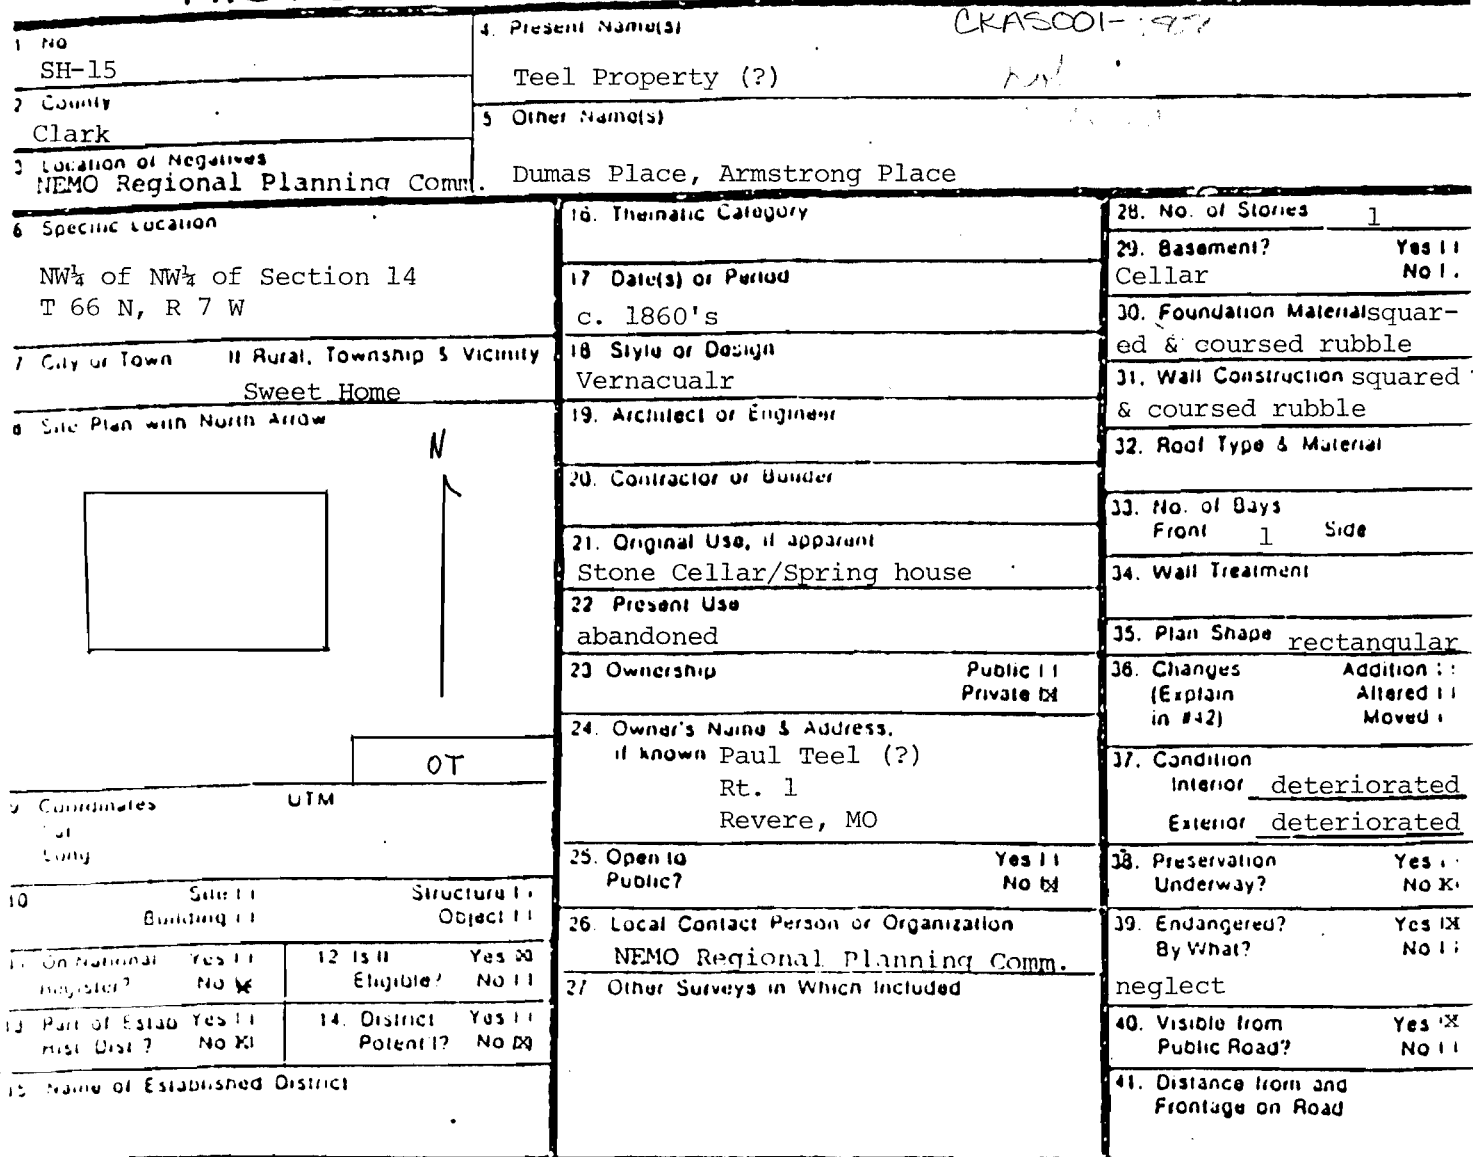 1 No
SH-15
2 County
Clark
3 Location of Negatives
NEMO Regional Planning Comm.
4. Present Name(s)
CKAS001-
Teel Property (?)
5 Other Name(s)
Dumas Place, Armstrong Place
6 Specific Location
NW¼ of NW¼ of Section 14
T 66 N, R 7 W
7 City or Town If Rural, Township & Vicinity
Sweet Home
8 Site Plan with North Arrow
N
OT
9 Coordinates UTM
Lat
Long
10 Site Structure
Building Object
11 On National Register? Yes No X
12 Is It Eligible? Yes X No
13 Part of Estab Hist. Dist.? Yes No X
14. District Potent'l? Yes No X
15 Name of Established District
16. Thematic Category
17 Date(s) or Period
c. 1860's
18 Style or Design
Vernacualr
19. Architect or Engineer
20. Contractor or Builder
21. Original Use, if apparent
Stone Cellar/Spring house
22 Present Use
abandoned
23 Ownership Public
Private X
24. Owner's Name & Address,
if known Paul Teel (?)
Rt. 1
Revere, MO
25. Open to Yes
Public? No X
26. Local Contact Person or Organization
NEMO Regional Planning Comm.
27 Other Surveys in Which Included
28. No. of Stories 1
29. Basement? Yes
Cellar No
30. Foundation Material squar-
ed & coursed rubble
31. Wall Construction squared
& coursed rubble
32. Roof Type & Material
33. No. of Bays
Front 1 Side
34. Wall Treatment
35. Plan Shape rectangular
36. Changes Addition
(Explain Altered
in #42) Moved
37. Condition
Interior deteriorated
Exterior deteriorated
38. Preservation Yes
Underway? No X
39. Endangered? Yes X
By What? No
neglect
40. Visible from Yes X
Public Road? No
41. Distance from and
Frontage on Road